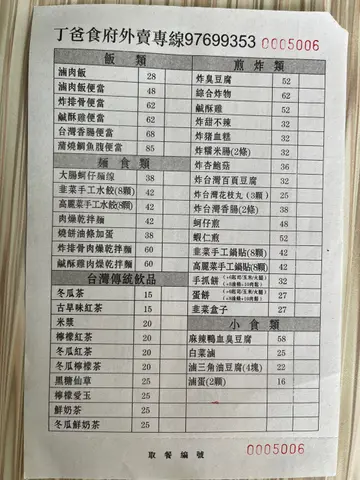 丁爸食府外賣專線97699353 0005006
飯類
滷肉飯 28
滷肉飯便當 48
炸排骨便當 62
鹹酥雞便當 62
台灣香腸便當 68
蒲燒鯛魚腹便當 85
麵食類
大腸蚵仔麵線 38
韭菜手工水餃(8顆) 42
高麗菜手工水餃(8顆) 42
肉燥乾拌麵 42
燒餅油條加蛋 38
炸排骨肉燥乾拌麵 60
鹹酥雞肉燥乾拌麵 60
台灣傳統飲品
冬瓜茶 15
古早味紅茶 15
米漿 20
檸檬紅茶 20
冬瓜紅茶 20
冬瓜檸檬茶 20
黑糖仙草 25
檸檬愛玉 25
鮮奶茶 25
冬瓜鮮奶茶 25
煎炸類
炸臭豆腐 52
綜合炸物 62
鹹酥雞 52
炸甜不辣 32
炸豬血糕 32
炸糯米腸(2條) 32
炸杏鮑菇 36
炸台灣百頁豆腐 32
炸台灣花枝丸(3顆) 25
炸台灣香腸(2條) 38
蚵仔煎 48
蝦仁煎 52
韭菜手工鍋貼(8顆) 42
高麗菜手工鍋貼(8顆) 42
手抓餅 32
蛋餅 27
韭菜盒子 27
小食類
麻辣鴨血臭豆腐 58
白菜滷 25
滷三角油豆腐(4塊) 22
滷蛋(2顆) 16
取餐編號 0005006